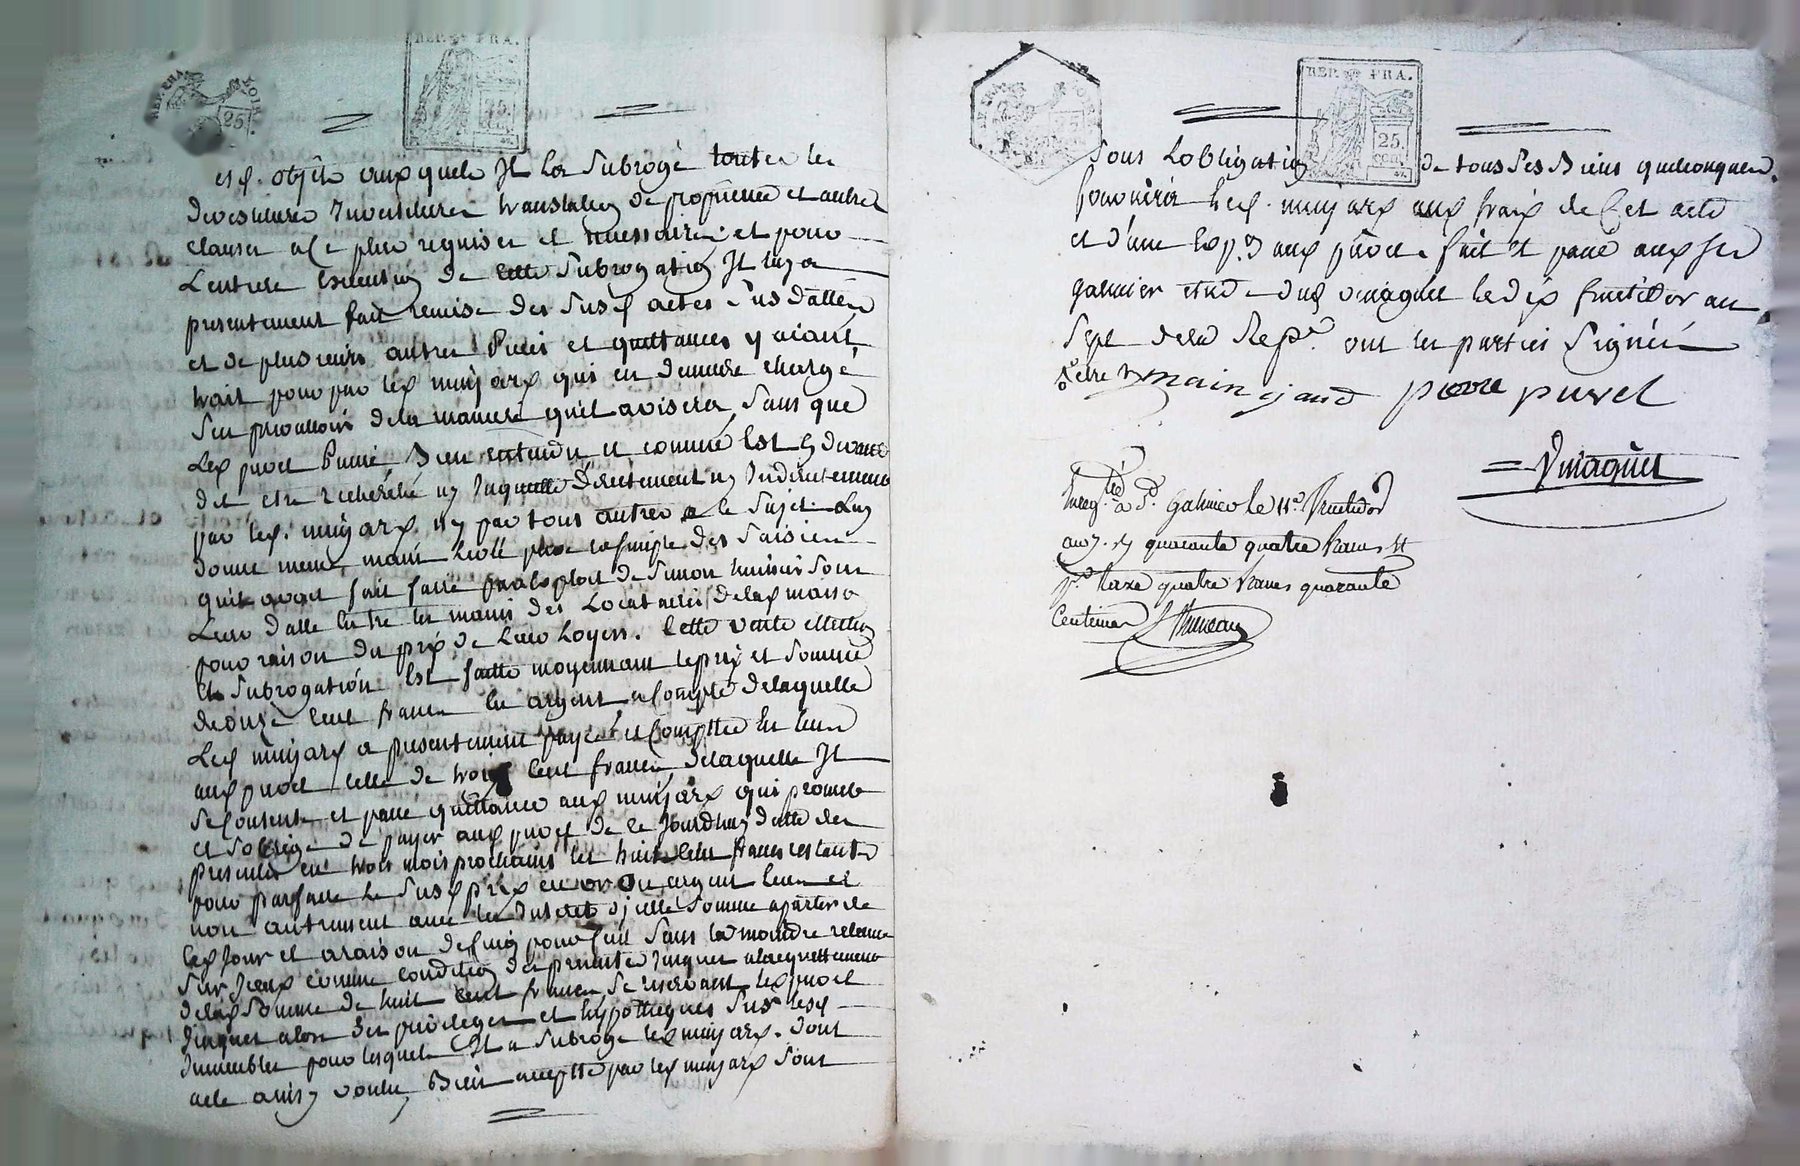 REP. FRA.
25
REP. FRA.
25.
esd. objets auxquels Il l'a subrogé toutes les
devestitures Investitures translation de propriétté et autres
clauses a ce plus requises et necessaires; et pour
L'entiere Execution de cette subrogation Il luy a
presentement fait remise des susd actes sus dattés
et de plusieurs autres Pieces et quittances y aiant
trait pour par led minjard qui en demeure chargé
s'en prevalloir de la maniere qu'il avisera, sans que
Led puvel Puisse, Bien entendu et comme Est cy devant
dit etre recherché ny Inquietté Directement ny Indirectement
par led. minjard ny par tous autres a le sujet Luy
donne meme main levée pure et simple des saisies
qu'il avoit fait faire par Exploit de simon huissier sous
Leur datte Entre les mains des Locataires delad maison
pour raison du prix de Leur Loyers. Cette vente Cession
et subrogation Est faitte moyennant le prix et somme
de onze Cent francs En argent a Compte de laquelle
Led minjard a presentement payé et Comptté En Ecus
aud puvel Celle de trois Cent francs, de laquelle Il
se Contente et passe quittance aud minjard qui promet
et s'oblige de payer aud puvel de ce Jourd'huy datte des
presentes en trois mois prochains les huit Cent francs restants
pour parfaire le susd prix en or ou argent Ecus et
non autrement avec les Interets d'jcelle somme a partir de
Ced Jour et a raison de Cinq pour Cent sans la moindre retenue
sur Jceux comme condition des presentes Jusques a lacquittement
delad somme de huit Cent francs se reservant led puvel
Jusques alors ses privileges et hypotheques sur lesd
Immeubles pour lesquels Il a subrogé led minjard. Dont
acte ainsy voulu, Bien accepté par led minjard sous
REP. FRA.
25.
cen.
sous L'obligation de tous ses Biens quelconques.
fournira led. minjard aux fraix de Cet acte
et d'une Exp.on aud puvel. fait et passé aud st
galmier etude dud vinaguet le dix fructidor an
sept de la Rep.e ont les parties signé
pierre puvel
Vinaguet
Enreg.tré a S.t Galmier le 11.e Fructidor
an 7. R quarante quatre francs
p.r taxe quatre francs quarante
Centimes